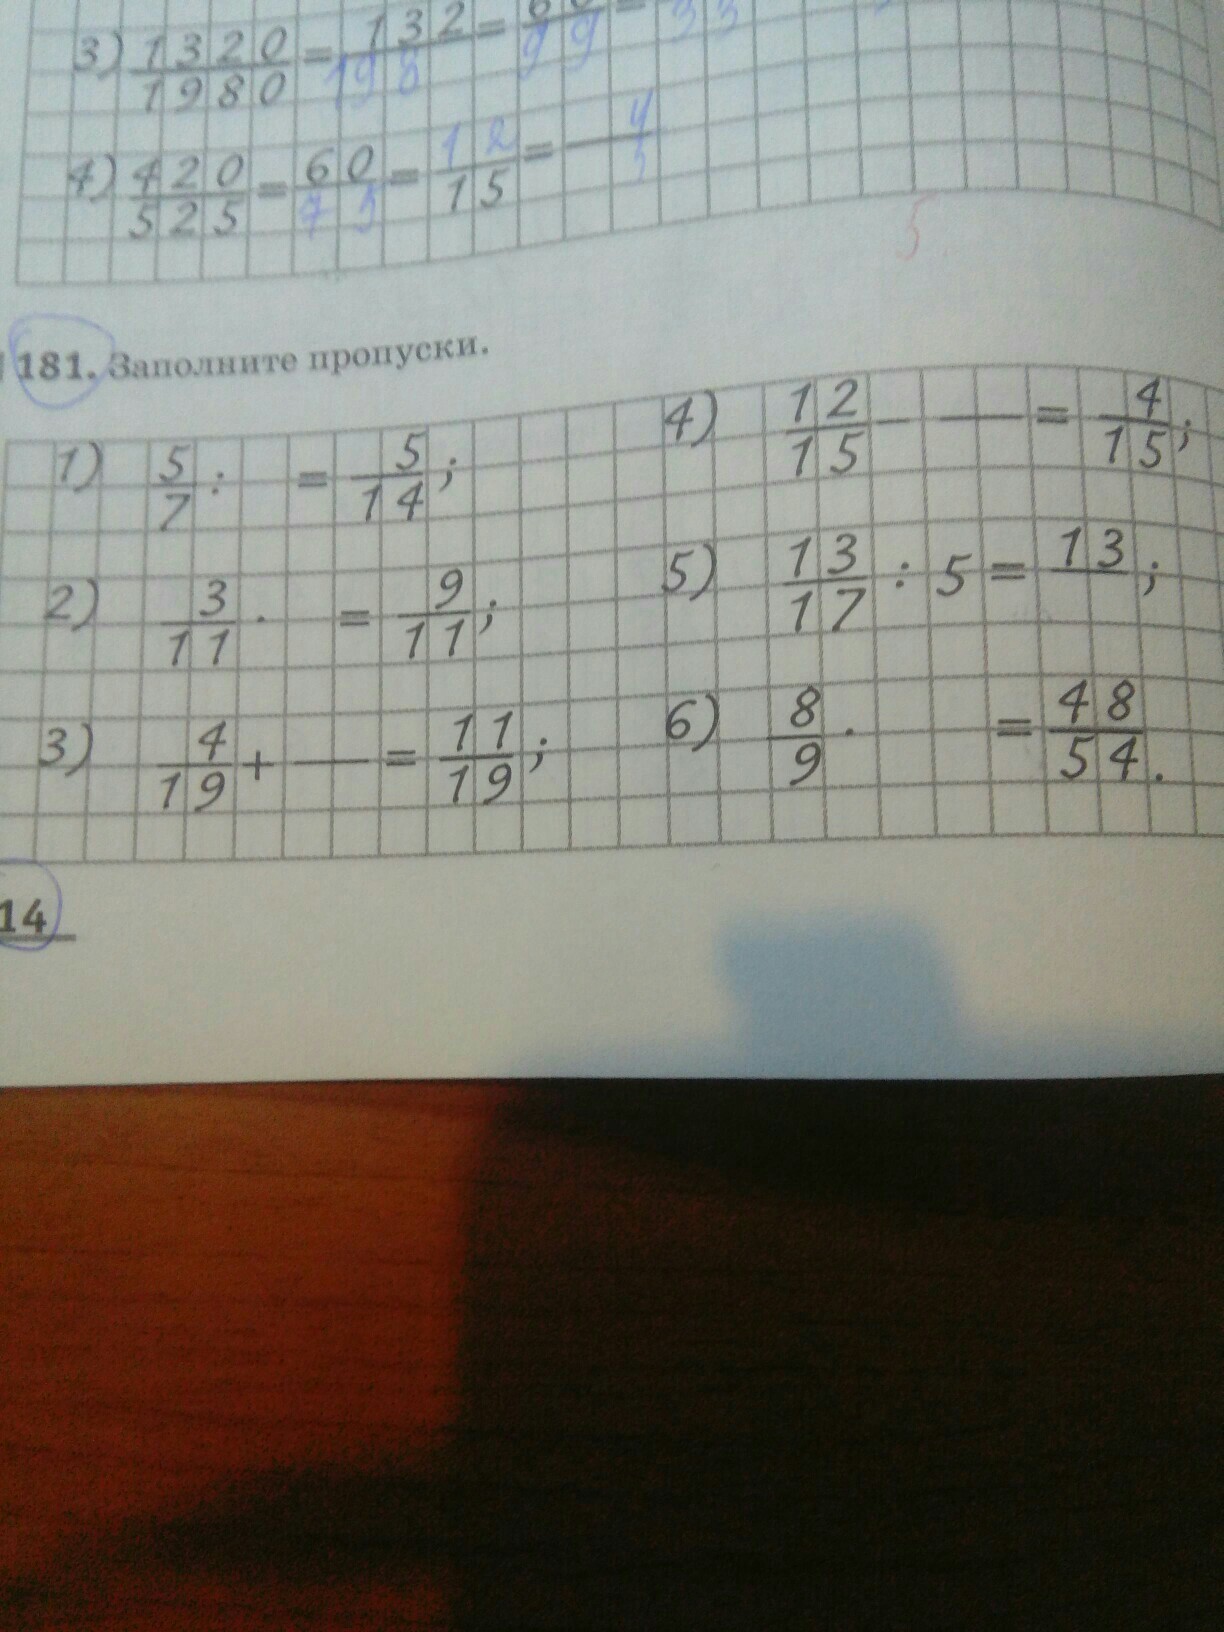 3) 1320/1980 = 132/198 = 60/99 = 33
4) 420/525 = 60/75 = 12/15 = 4/5
5
181. Заполните пропуски.
1) 5/7 : = 5/14;
2) 3/11 · = 9/11;
3) 4/19 + — = 11/19;
4) 12/15 − — = 4/15;
5) 13/17 : 5 = 13/ ;
6) 8/9 · = 48/54.
14